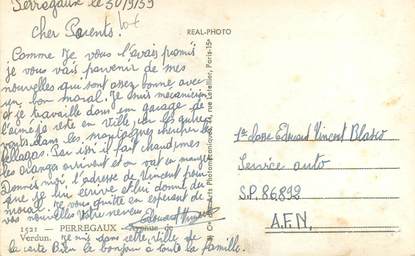 Perregaux le 30/9/59
Cher Parents
Comme je vous l'avais promis
je vous vais parvenir de mes
nouvelles qui sont assez bonne avec
un bon moral. Je suis mécanicien
et je travaille dans un garage de
reste en ville, car les autres
vont dans les montagnes chercher les
fellagas. Par ici il fait chaud, mes
les oranges arrivent et on va en manger
Donnais moi l'adresse de Vincent pour
que je lui écrive et lui donné du
moral. Je vous quitte en esperant de
vos nouvelles Votre neveu
Edouard Vincent
1521 - PERREGAUX - Avenue de
Verdun. je suis dans cette ville de
la carte Bien le bonjour à toute la famille.
REAL-PHOTO
Paris-15e
Edouard Vincent Blasco
Service auto
S.P. 86.892
A.F.N.